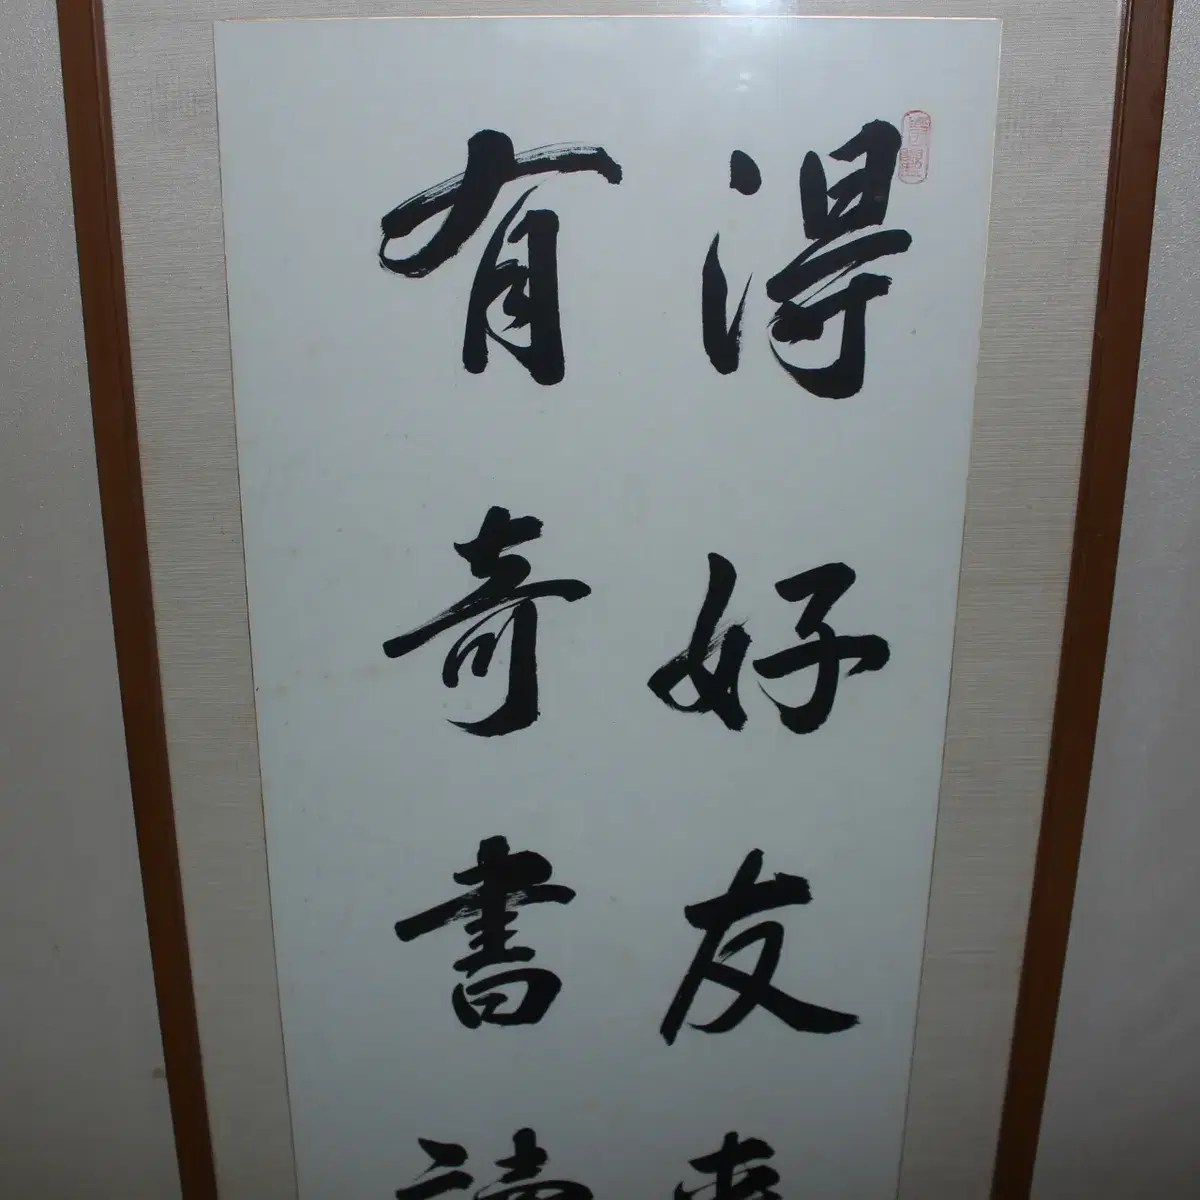 得好友來
有奇書讀